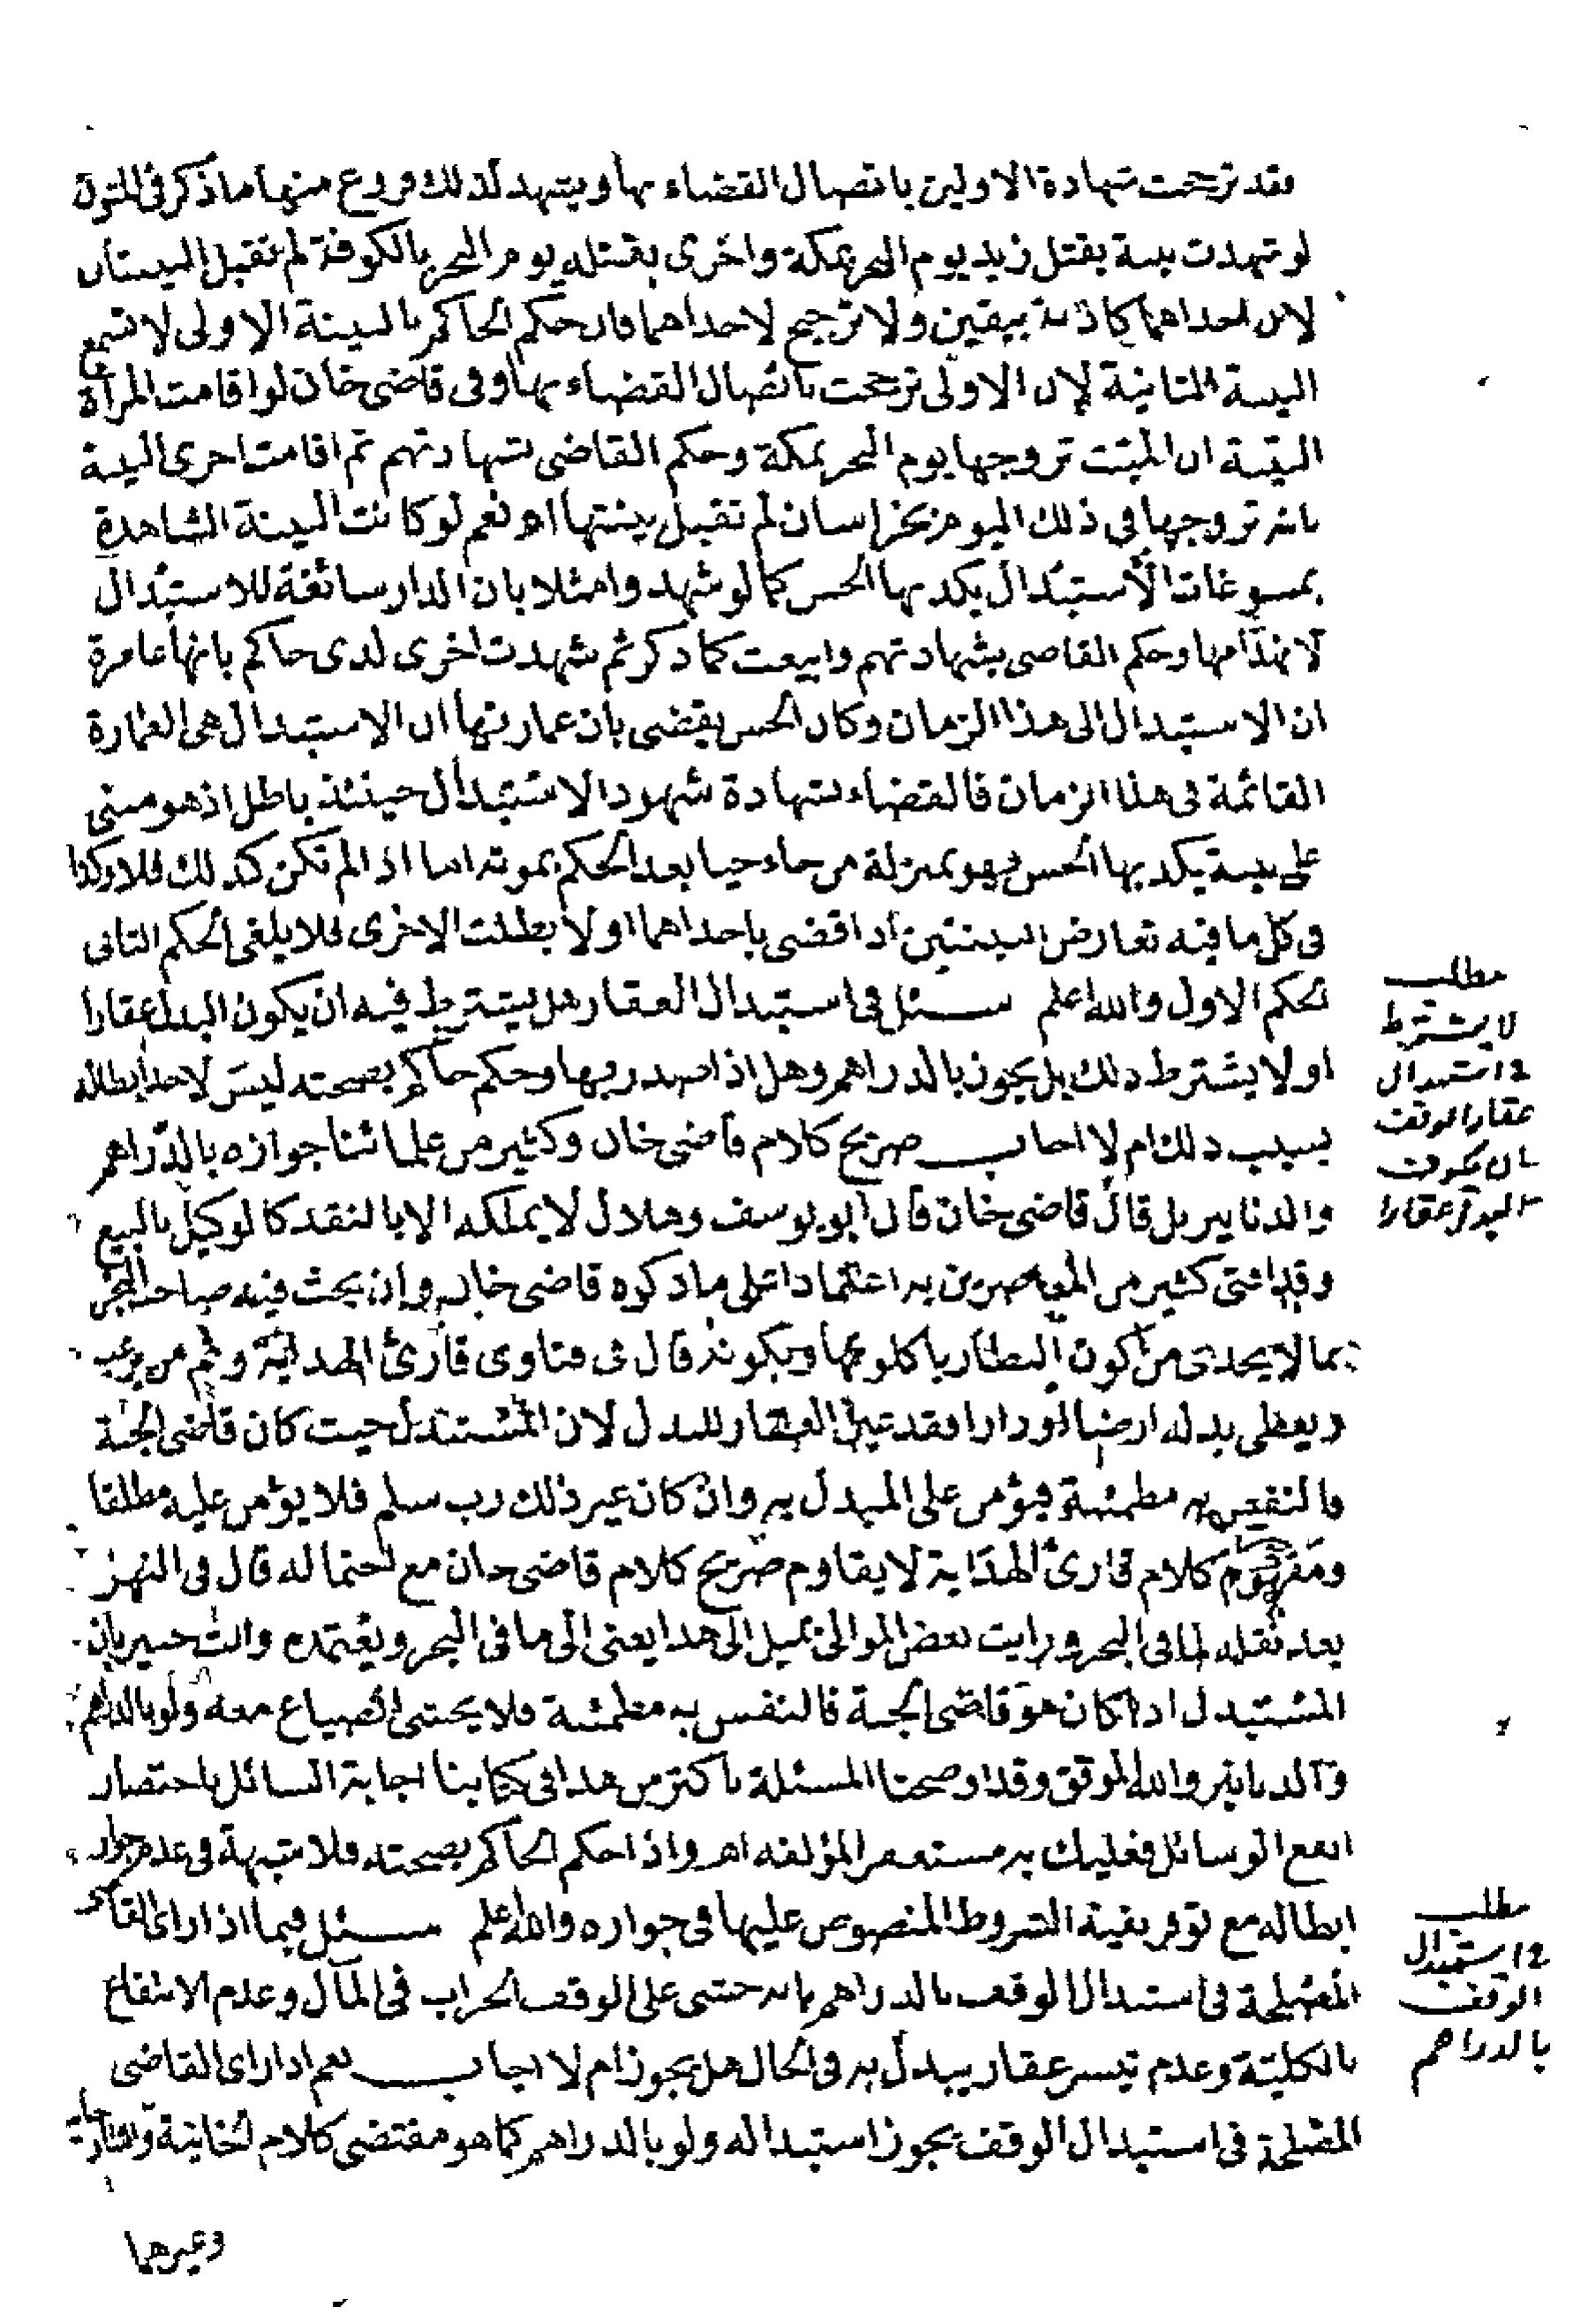 فقد ترجحت شهادة الاولين باتصال القضاء بها ويشهد لذلك فروع منها ما ذكر في المتون
لو شهدت بينة بقتل زيد يوم النحر بمكة واخرى بقتله يوم النحر بالكوفة لم تقبل البينتان
لان احداهما كاذبة بيقين ولا ترجيح لاحداهما فان حكم الحاكم بالبينة الاولى لا تسمع
البينة الثانية لان الاولى ترجحت باتصال القضاء بها وفى قاضى خان لو اقامت المرأة
البينة ان الميت تزوجها يوم النحر بمكة وحكم القاضى بشهادتهم ثم اقامت اخرى البينة
بانه تزوجها فى ذلك اليوم بخراسان لم تقبل بينتها اه نعم لو كانت البينة الشاهدة
بمسوغات الاستبدال يكذبها الحس كما لو شهدوا مثلا بان الدار سائغة للاستبدال
لانهدامها وحكم القاضى بشهادتهم وابيعت كما ذكر ثم شهدت اخرى لدى حاكم بانها عامرة
ان الاستبدال الى هذا الزمان وكان الحس يقضى بان عمارتها ان الاستبدال هى العمارة
القائمة فى هذا الزمان فالقضاء بشهادة شهود الاستبدال حينئذ باطل اذ هو مبنى
على بينة يكذبها الحس فهو بمنزلة من جاء حيا بعد الحكم بموته اما اذا لم تكن كذلك فلا وكذا
فى كل ما فيه تعارض البينتين اذا قضى باحداهما اولا بطلت الاخرى فلا يلغى الحكم الثانى
لحكم الاول والله اعلم سئل فى استبدال العقار هل يشترط فيه ان يكون البدل عقارا
او لا يشترط ذلك بل يجوز بالدراهم وهل اذا صدر بها وحكم حاكم بصحته ليس لاحد ابطاله
بسبب ذلك ام لا اجاب صريح كلام قاضى خان وكثير من علمائنا جوازه بالدراهم
والدنانير بل قال قاضى خان قال ابو يوسف وهلال لا يملكه الا بالنقد كالوكيل بالبيع
وقد افتى كثير من المعاصرين به اعتمادا على ما ذكره قاضى خان وان بحث فيه صاحب البحر
بما لا يجدى من كون النظار ياكلونها وبكونه قال فى فتاوى قارئ الهداية وثم من يرغب
ويعطى بدله ارضا او دارا فقد عين العقار للبدل لان المستبدل حيث كان قاضى الجنة
فالنفس به مطمئنة فيؤمن على المبدل به وان كان غير ذلك رب سلم فلا يؤمن عليه مطلقا
ومفهوم كلام قارئ الهداية لا يقاوم صريح كلام قاضى خان مع احتماله قال فى النهر
بعد نقله لما فى البحر ورايت بعض الموالى يميل الى هذا يعنى الى ما فى البحر ويعتمده وانت خبير بان
المستبدل اذا كان هو قاضى الجنة فالنفس به مطمئنة فلا يخشى الضياع معه ولو بالدراهم
والدنانير والله الموفق وقد اوضحنا المسئلة باكثر من هذا فى كتابنا اجابة السائل باختصار
انفع الوسائل فعليك به مستغفرا لمؤلفه اه واذا حكم الحاكم بصحته فلا شبهة فى عدم جواز
ابطاله مع توفر بقية الشروط المنصوص عليها فى جوازه والله اعلم سئل فيما اذا راى القاضى
المصلحة فى استبدال الوقف بالدراهم بانه خشى على الوقف الخراب فى المآل وعدم الانتفاع
بالكلية وعدم تيسر عقار يبدل به فى الحال هل يجوز ام لا اجاب نعم اذا راى القاضى
المصلحة فى استبدال الوقف يجوز استبداله ولو بالدراهم كما هو مقتضى كلام الخانية
وغيرهما
مطلب
لا يشترط
فى استبدال
عقار الوقف
ان يكون
البدل عقارا
مطلب
فى استبدال
الوقف
بالدراهم